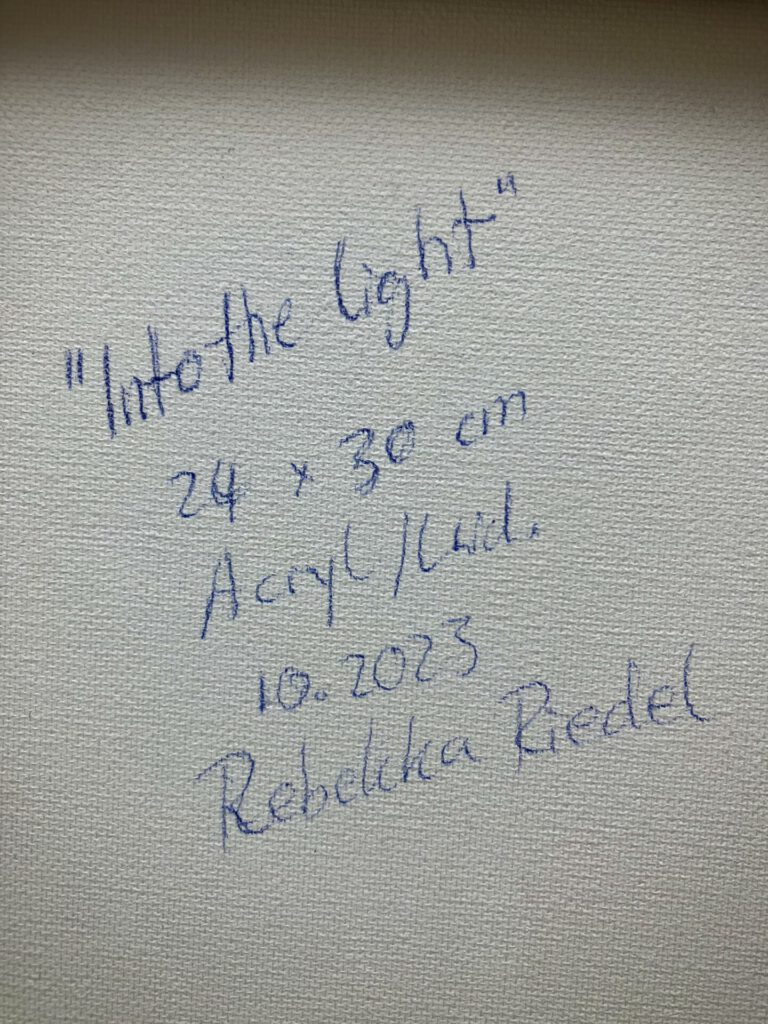 "Into the light"
24 x 30 cm
Acryl fluid.
10.2023
Rebekka Riedel